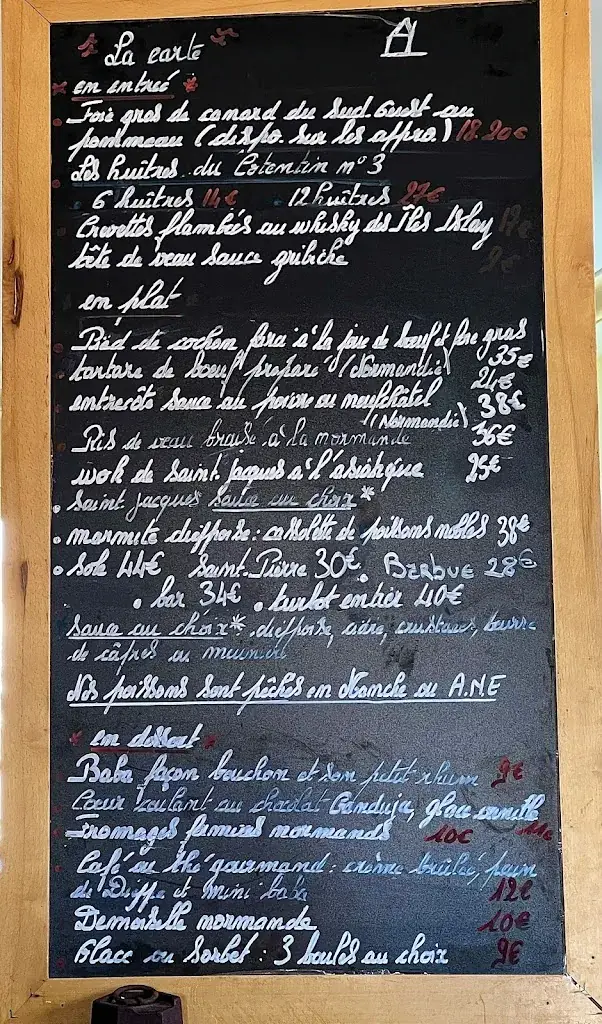 La carte A
en entrée
Foie gras de canard du Sud Ouest au
pommeau (dispo. sur les appro.) 18.90€
Les huîtres du Cotentin n°3
6 huîtres 14€ 12 huîtres 27€
Crevettes flambées au whisky des Îles Islay
tête de veau sauce gribiche 9€
en plat
Pied de cochon farci à la joue de boeuf et foie gras
35€
tartare de boeuf préparé (Normandie) 24€
entrecôte sauce au poivre ou neufchâtel 38€
(Normandie)
Ris de veau braisé à la normande 36€
wok de Saint. Jacques à l'asiatique 25€
Saint Jacques sauce au choix*
marmite dieppoise : cassolette de poissons nobles 38€
Sole 44€ Saint. Pierre 30€ BARBUE 28€
bar 34€ turbot entier 40€
Sauce au choix* dieppoise, cidre, crustacés, beurre
de câpres ou meunière
Nos poissons sont pêchés en Manche ou A.N.E
en dessert
Baba façon bouchon et son petit rhum 9€
Coeur coulant au chocolat Gianduja, glace vanille
11€
Fromages fermiers normands 10€
Café ou thé gourmand : crème brûlée, pavn
de Dieppe et mini baba 12€
Demoiselle normande 10€
Glace ou Sorbet : 3 boules au choix 9€